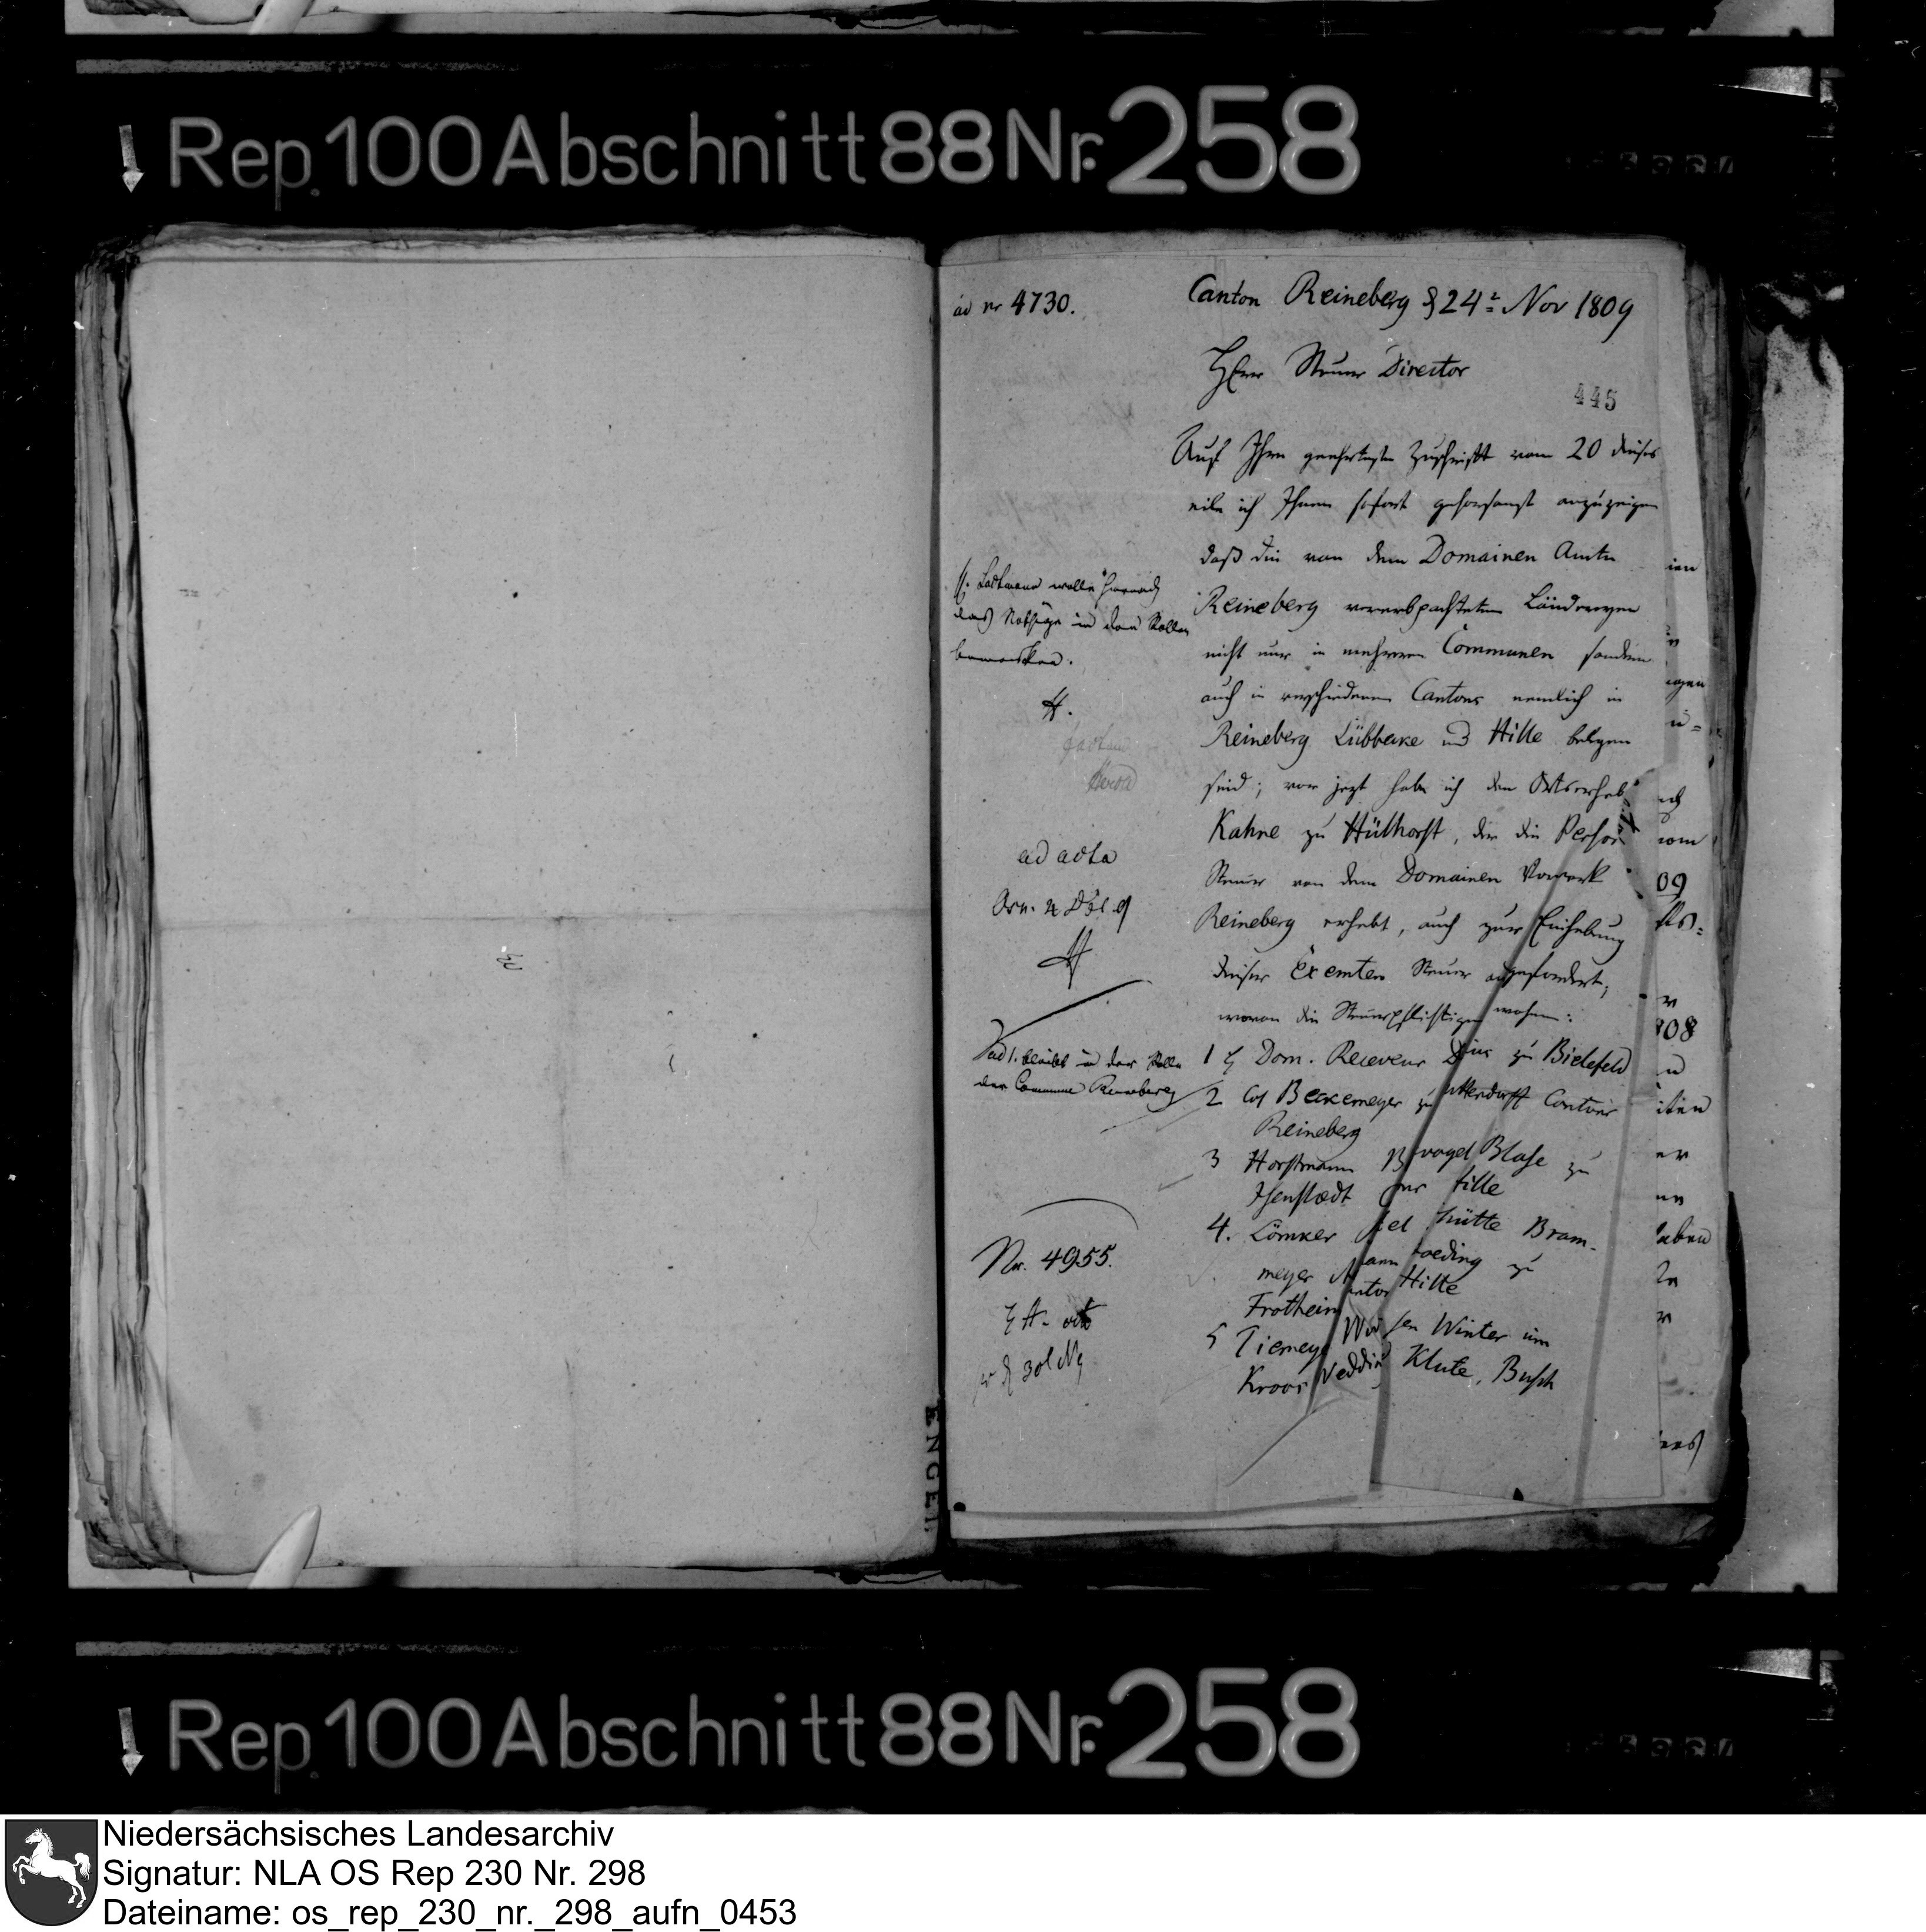 Rep. 100 Abschnitt 88 Nr. 258
ad nr 4730.
Canton Reineberg d 24t Nov 1809
Herr Steuer Director
445
Auf Ihre geehrteste Zuschrift vom 20 dieses
eile ich Ihnen sofort gehorsamst anzuzeigen
daß die von dem Domainen Amte
Reineberg vererbpachteten Ländereyen
nicht nur in mehreren Communen sondern
auch in verschiedenen Cantons nemlich in
Reineberg Lübbecke und Hille belegen
sind; vor jezt habe ich den Ortserheb
Kahne zu Hülhorst, der die Person
Steuer von dem Domainen Vorwerk
Reineberg erhebt, auch zur Einhebung
dieser Exemten Steuer aufgefordert;
wovon die Steuerpflichtigen wohnen:
1 H Dom. Receveur zu Bielefeld
2 Col Beckemeyer zu Canton
Reineberg
3 Horstmann vogel Blase zu
Isenstædt Hille
4. Lömker hütte Bram-
meyer zu
Frotheim Hille
5 Tiemey Winter im
Kroos Klute, Busch
H. Lodtmann wolle hiernach
das Nöthige in den Rollen
bemerken.
H.
ad acta
Osn. 4 Dbr 9
ad 1. bleibt in der Rolle
der Commune Reineberg
Nr. 4955.
Rep. 100 Abschnitt 88 Nr. 258
Niedersächsisches Landesarchiv
Signatur: NLA OS Rep 230 Nr. 298
Dateiname: os_rep_230_nr._298_aufn_0453